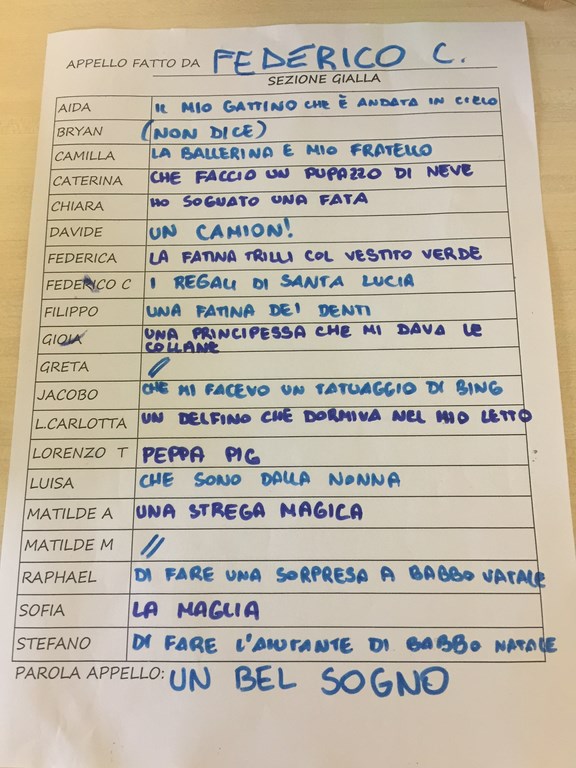 APPELLO FATTO DA FEDERICO C.
SEZIONE GIALLA
AIDA IL MIO GATTINO CHE È ANDATA IN CIELO
BRYAN (NON DICE)
CAMILLA LA BALLERINA E MIO FRATELLO
CATERINA CHE FACCIO UN PUPAZZO DI NEVE
CHIARA HO SOGUATO UNA FATA
DAVIDE UN CAMION!
FEDERICA LA FATINA TRILLI COL VESTITO VERDE
FEDERICO C I REGALI DI SANTA LUCIA
FILIPPO UNA FATINA DEI DENTI
GIOIA UNA PRINCIPESSA CHE MI DAVA LE
COLLANE
GRETA //
JACOBO CHE MI FACEVO UN TATUAGGIO DI BING
L.CARLOTTA UN DELFINO CHE DORMIVA NEL MIO LETTO
LORENZO T PEPPA PIG
LUISA CHE SONO DALLA NONNA
MATILDE A UNA STREGA MAGICA
MATILDE M //
RAPHAEL DI FARE UNA SORPRESA A BABBO NATALE
SOFIA LA MAGLIA
STEFANO DI FARE L'AIUTANTE DI BABBO NATALE
PAROLA APPELLO: UN BEL SOGNO